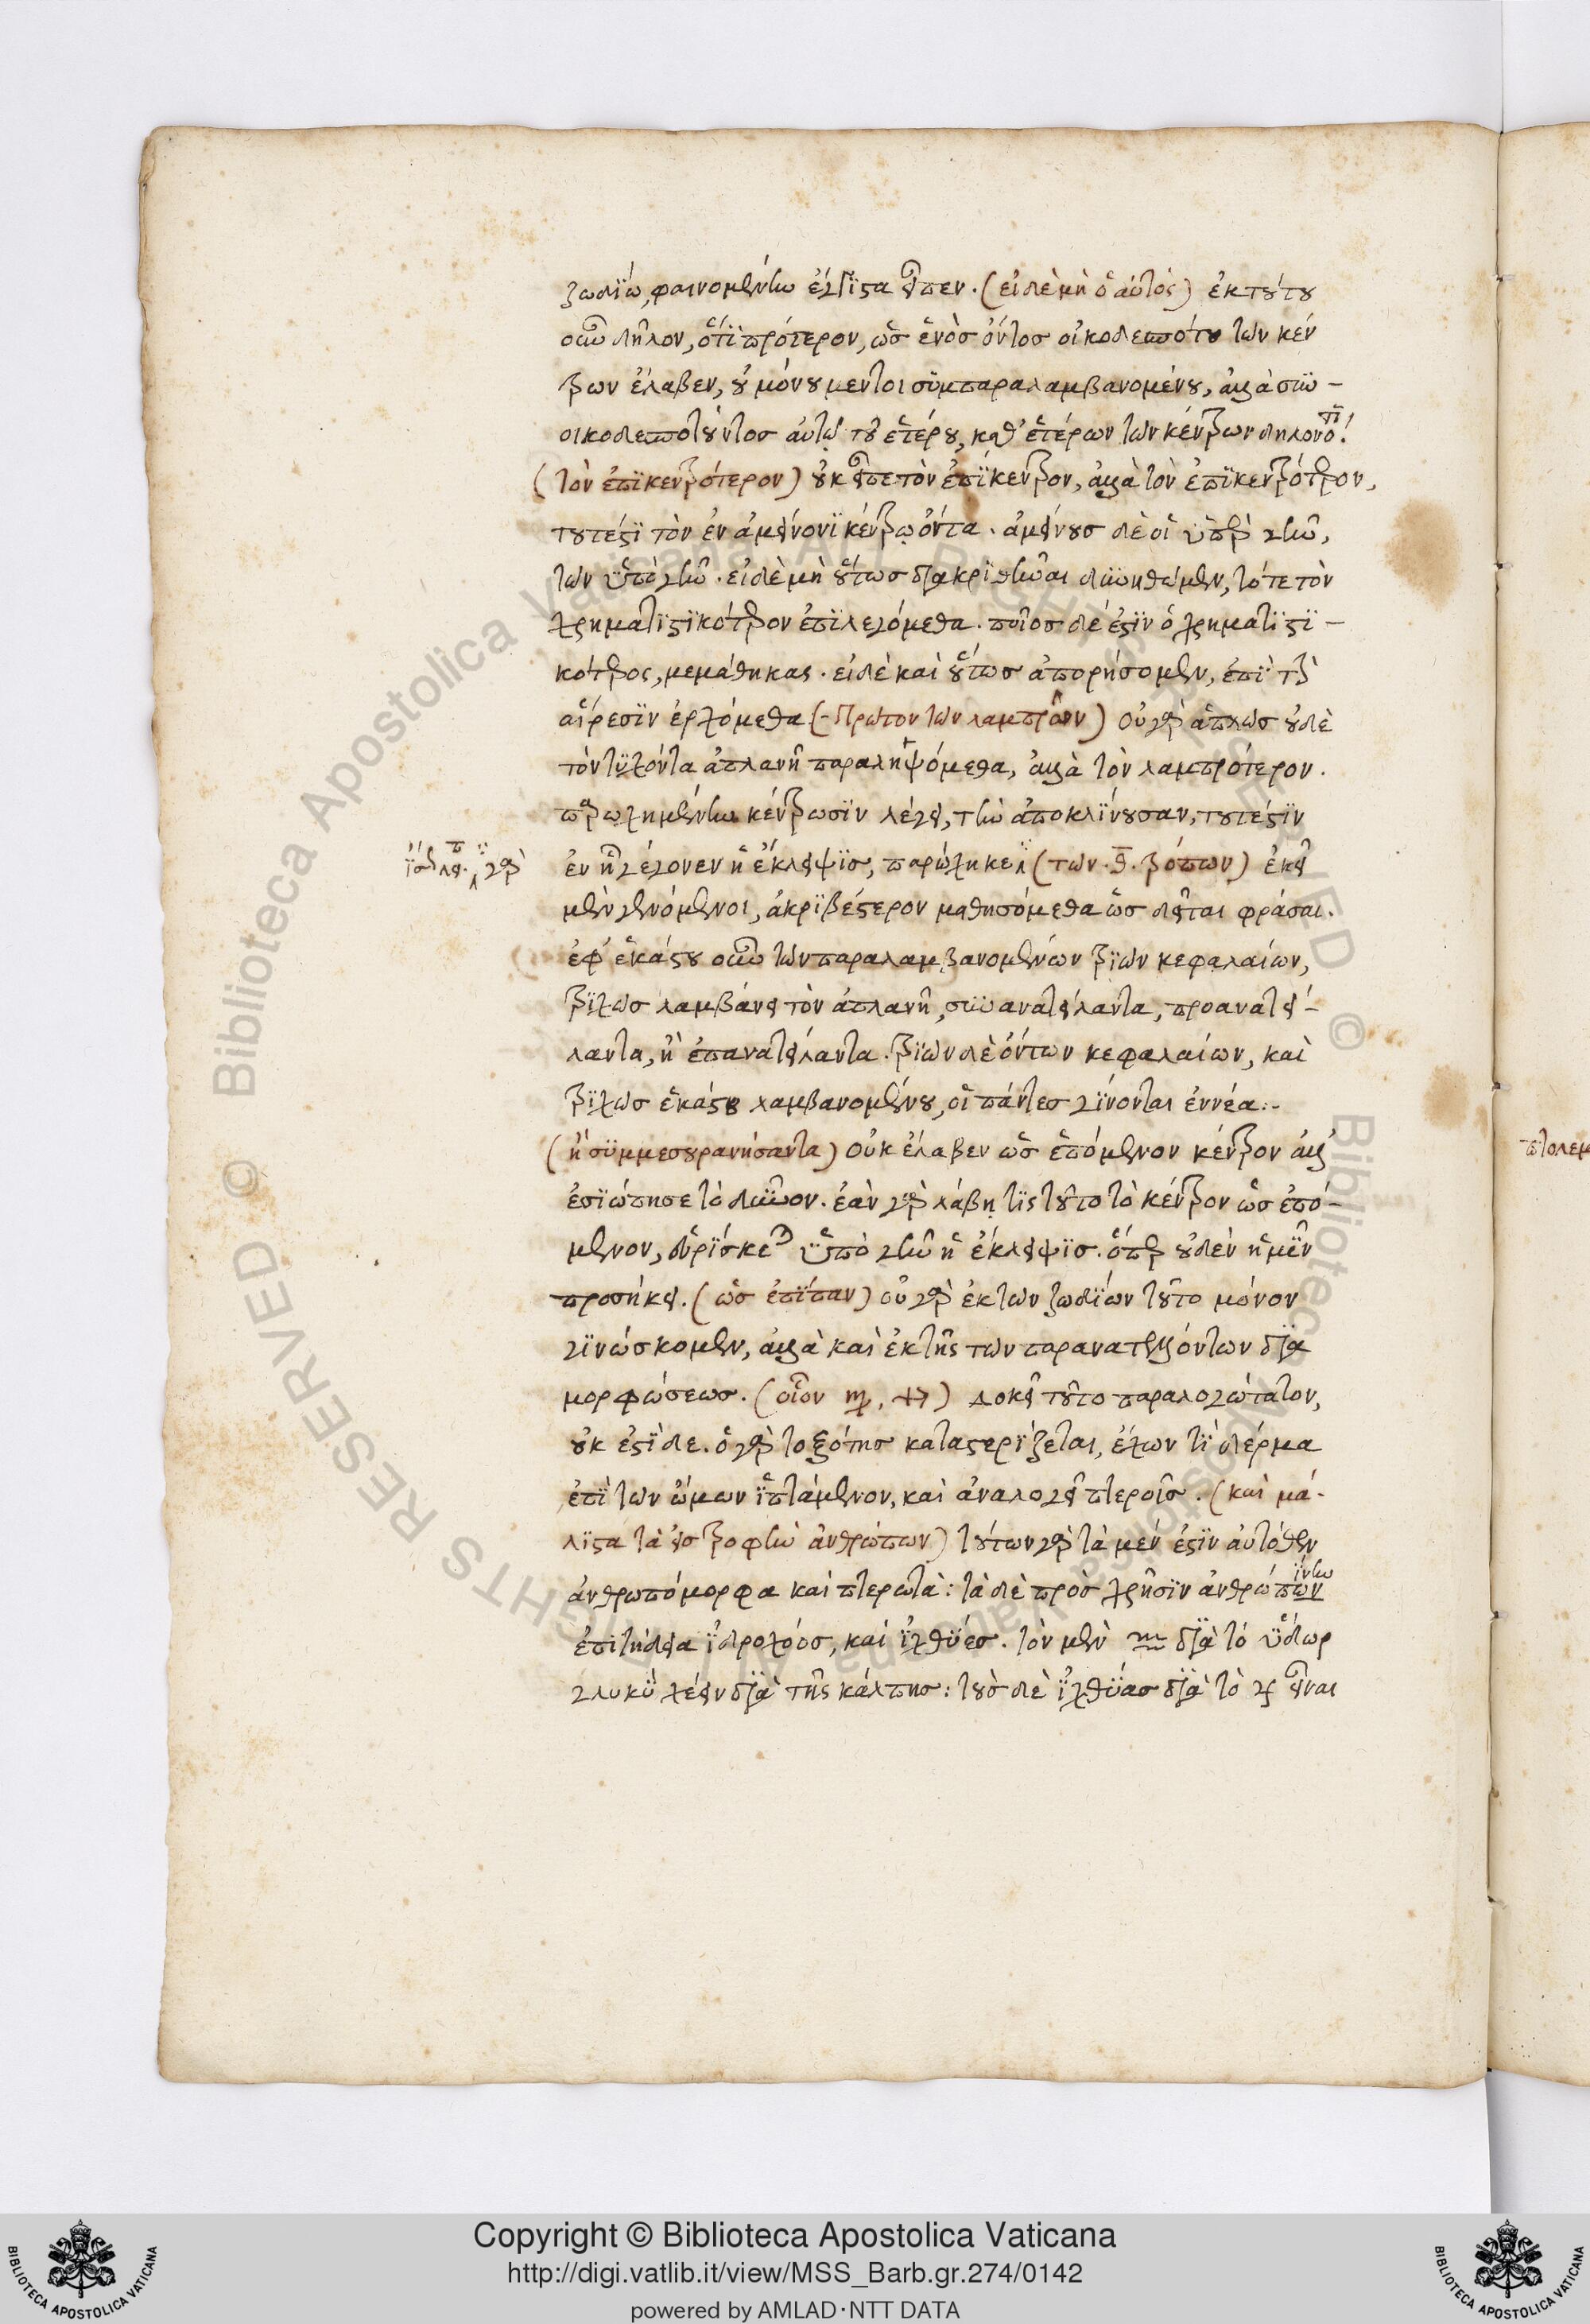 ζωδίω, φαινομένην ἔγγιστα εἶπεν. (εἰ δὲ μὴ ὁ αὐτὸς) ἐκ τούτου
οὖν δῆλον, ὅτι πρότερον, ὡς ἑνὸς ὄντος οἰκοδεσπότου τῶν κέν
τρων ἔλαβεν, οὐ μόνου μέντοι συμπαραλαμβανομένου, ἀλλὰ συν-
οικοδεσποτοῦντος αὐτῷ τοῦ ἑτέρου, καθ' ἑτέρων τῶν κέντρων δηλονότι!
(τὸν ἐπικεντρότερον) οὐκ εἶπε τὸν ἐπίκεντρον, ἀλλὰ τὸν ἐπικεντρότερον,
τουτέστι τὸν ἐν ἀμείνονι κέντρῳ ὄντα. ἀμείνους δὲ οἱ ὑπὲρ γῆν,
τῶν ὑπὸ γῆν. εἰ δὲ μὴ οὕτως διακριθῆναι δυνηθῶμεν, τότε τὸν
χρηματιστικότερον ἐπιλεγόμεθα. ποῖος δέ ἐστιν ὁ χρηματιστι-
κότερος, μεμάθηκας. εἰ δὲ καὶ οὕτως ἀπορήσομεν, ἐπὶ τὴν
αἵρεσιν ἐρχόμεθα (-Πρῶτον τῶν λαμπρῶν) οὐ γὰρ ἁπλῶς οὐδὲ
τὸν τυχόντα ἀπλανῆ παραληψόμεθα, ἀλλὰ τὸν λαμπρότερον.
παρῳχημένην κέντρωσιν λέγει, τὴν ἀποκλίνουσαν, τουτέστιν
ἐν ᾗ γέγονεν ἡ ἔκλειψις, παρῴχηκε (τῶν . θ . τρόπων) ἐκεῖ
μὲν γενόμενοι, ἀκριβέστερον μαθησόμεθα ὡς δεῖται φράσαι.
ἐφ' ἑκάστου οὖν τῶν παραλαμβανομένων τριῶν κεφαλαίων,
τριχῶς λαμβάνει τὸν ἀπλανῆ, συνανατείλαντα, προανατεί-
λαντα, ἢ ἐπανατείλαντα. τριῶν δὲ ὄντων κεφαλαίων, καὶ
τριχῶς ἑκάστου λαμβανομένου, οἱ πάντες γίνονται ἐννέα:-
(ἢ συμμεσουρανήσαντα) οὐκ ἔλαβεν ὡς ἑπόμενον κέντρον ἀλλ'
ἐσιώπησε τὸ δῦνον. ἐὰν γὰρ λάβῃ τις τοῦτο τὸ κέντρον ὡς ἑπό-
μενον, εὑρίσκεται ὑπὸ γῆν ἡ ἔκλειψις. ὅπερ οὐδὲν ἡμῖν
προσήκει. (ὡς ἐπίπαν) οὐ γὰρ ἐκ τῶν ζωδίων τοῦτο μόνον
γινώσκομεν, ἀλλὰ καὶ ἐκ τῆς τῶν παρανατελλόντων δια
μορφώσεως. (οἷον ♍, ♐) Δοκεῖ τοῦτο παραλογώτατον,
οὐκ ἔστι δέ. ὁ γὰρ τοξότης καταστερίζεται, ἔχων τὶ δέρμα
ἐπὶ τῶν ὤμων ἱπτάμενον, καὶ ἀναλογεῖ πτεροῖς. (καὶ μά-
λιστα τὰ εἰς τροφὴν ἀνθρώπων) τούτων γὰρ τὰ μέν ἐστιν αὐτόθεν
ἀνθρωπόμορφα καὶ πτερωτὰ: τὰ δὲ πρὸς χρῆσιν ἀνθρώπων
ἐπιτήδεια ὑδροχόος, καὶ ἰχθύες. τὸν μὲν ♒ διὰ τὸ ὕδωρ
γλυκὺ χέειν διὰ τῆς κάλπης: τοὺς δὲ ἰχθύας διὰ τὸ ♃ εἶναι